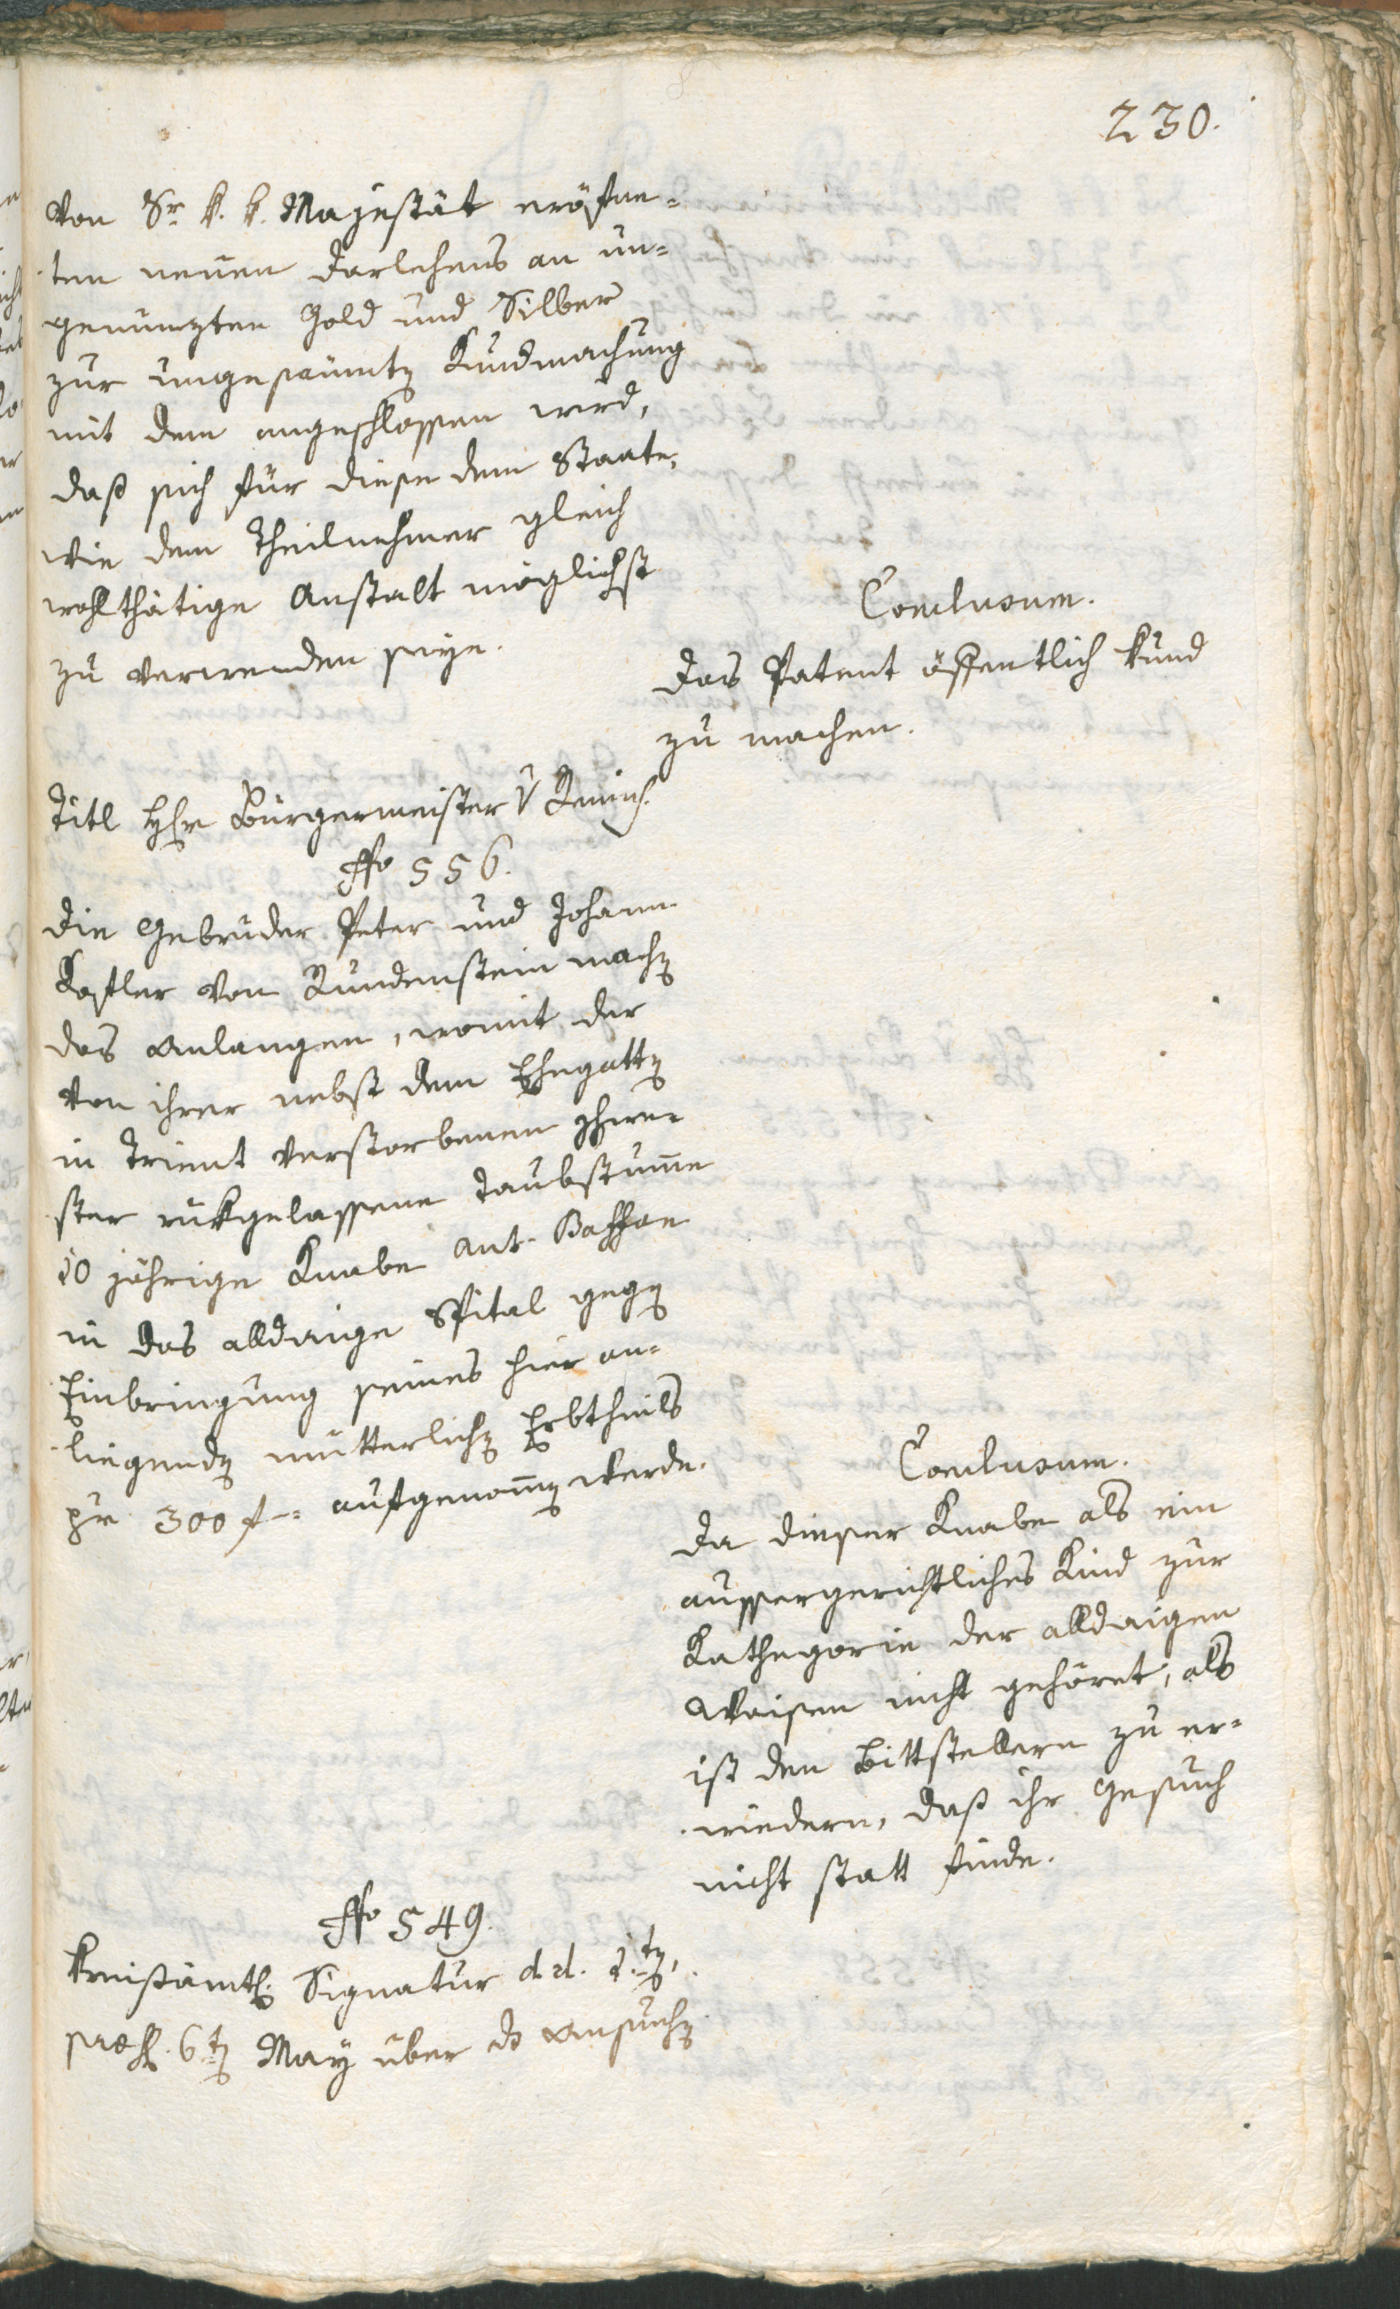 230.
von Sr k. k. Majestät eröfne-
ten neuen Darlehens an un-
gemünzten Gold und Silber
zur ungesäumtn Kundmachung
mit dem angeschlossen wird,
daß sich für diese dem Staate,
wie dem Theilnehmer gleich
wohlthätige Anstalt möglichst
zu verwenden seye.
Conclusum.
Das Patent öffentlich kund
zu machen.
Titl Hr Bürgermeister v
No 556.
Die Gebrüder Peter und Johann
Kostler von Rundenstein machn
das Anlangen, womit der
von ihrer nebst dem Ehegattn
in Trient verstorbenen Schwe-
ster rükgelassene taubstumme
10 jährige Knabe Ant.
in das alldaige Spital gegn
Einbringung seines hier an-
liegendn mütterlichn Erbtheils
pr 300 f - aufgenomn werde.
Conclusum.
Da dieser Knabe als ein
aussergerichtliches Kind zur
Kathegorie der alldaigen
Waisen nicht gehöret, als
ist den Bittstellern zu er-
wiedern, daß ihr Gesuch
nicht statt finde.
No 549.
Kreisämtl. Signatur d. d. 2.tn,
praes. 6tn May über do Ansuchn